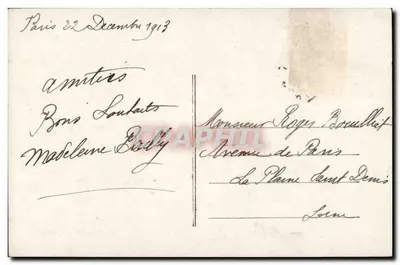 Paris 22 Decembre 1913
Amitiés
Bons Souhaits
Madeleine
Monsieur Roger Bouilliot
Avenue de Paris
La Plaine Saint Denis
Seine